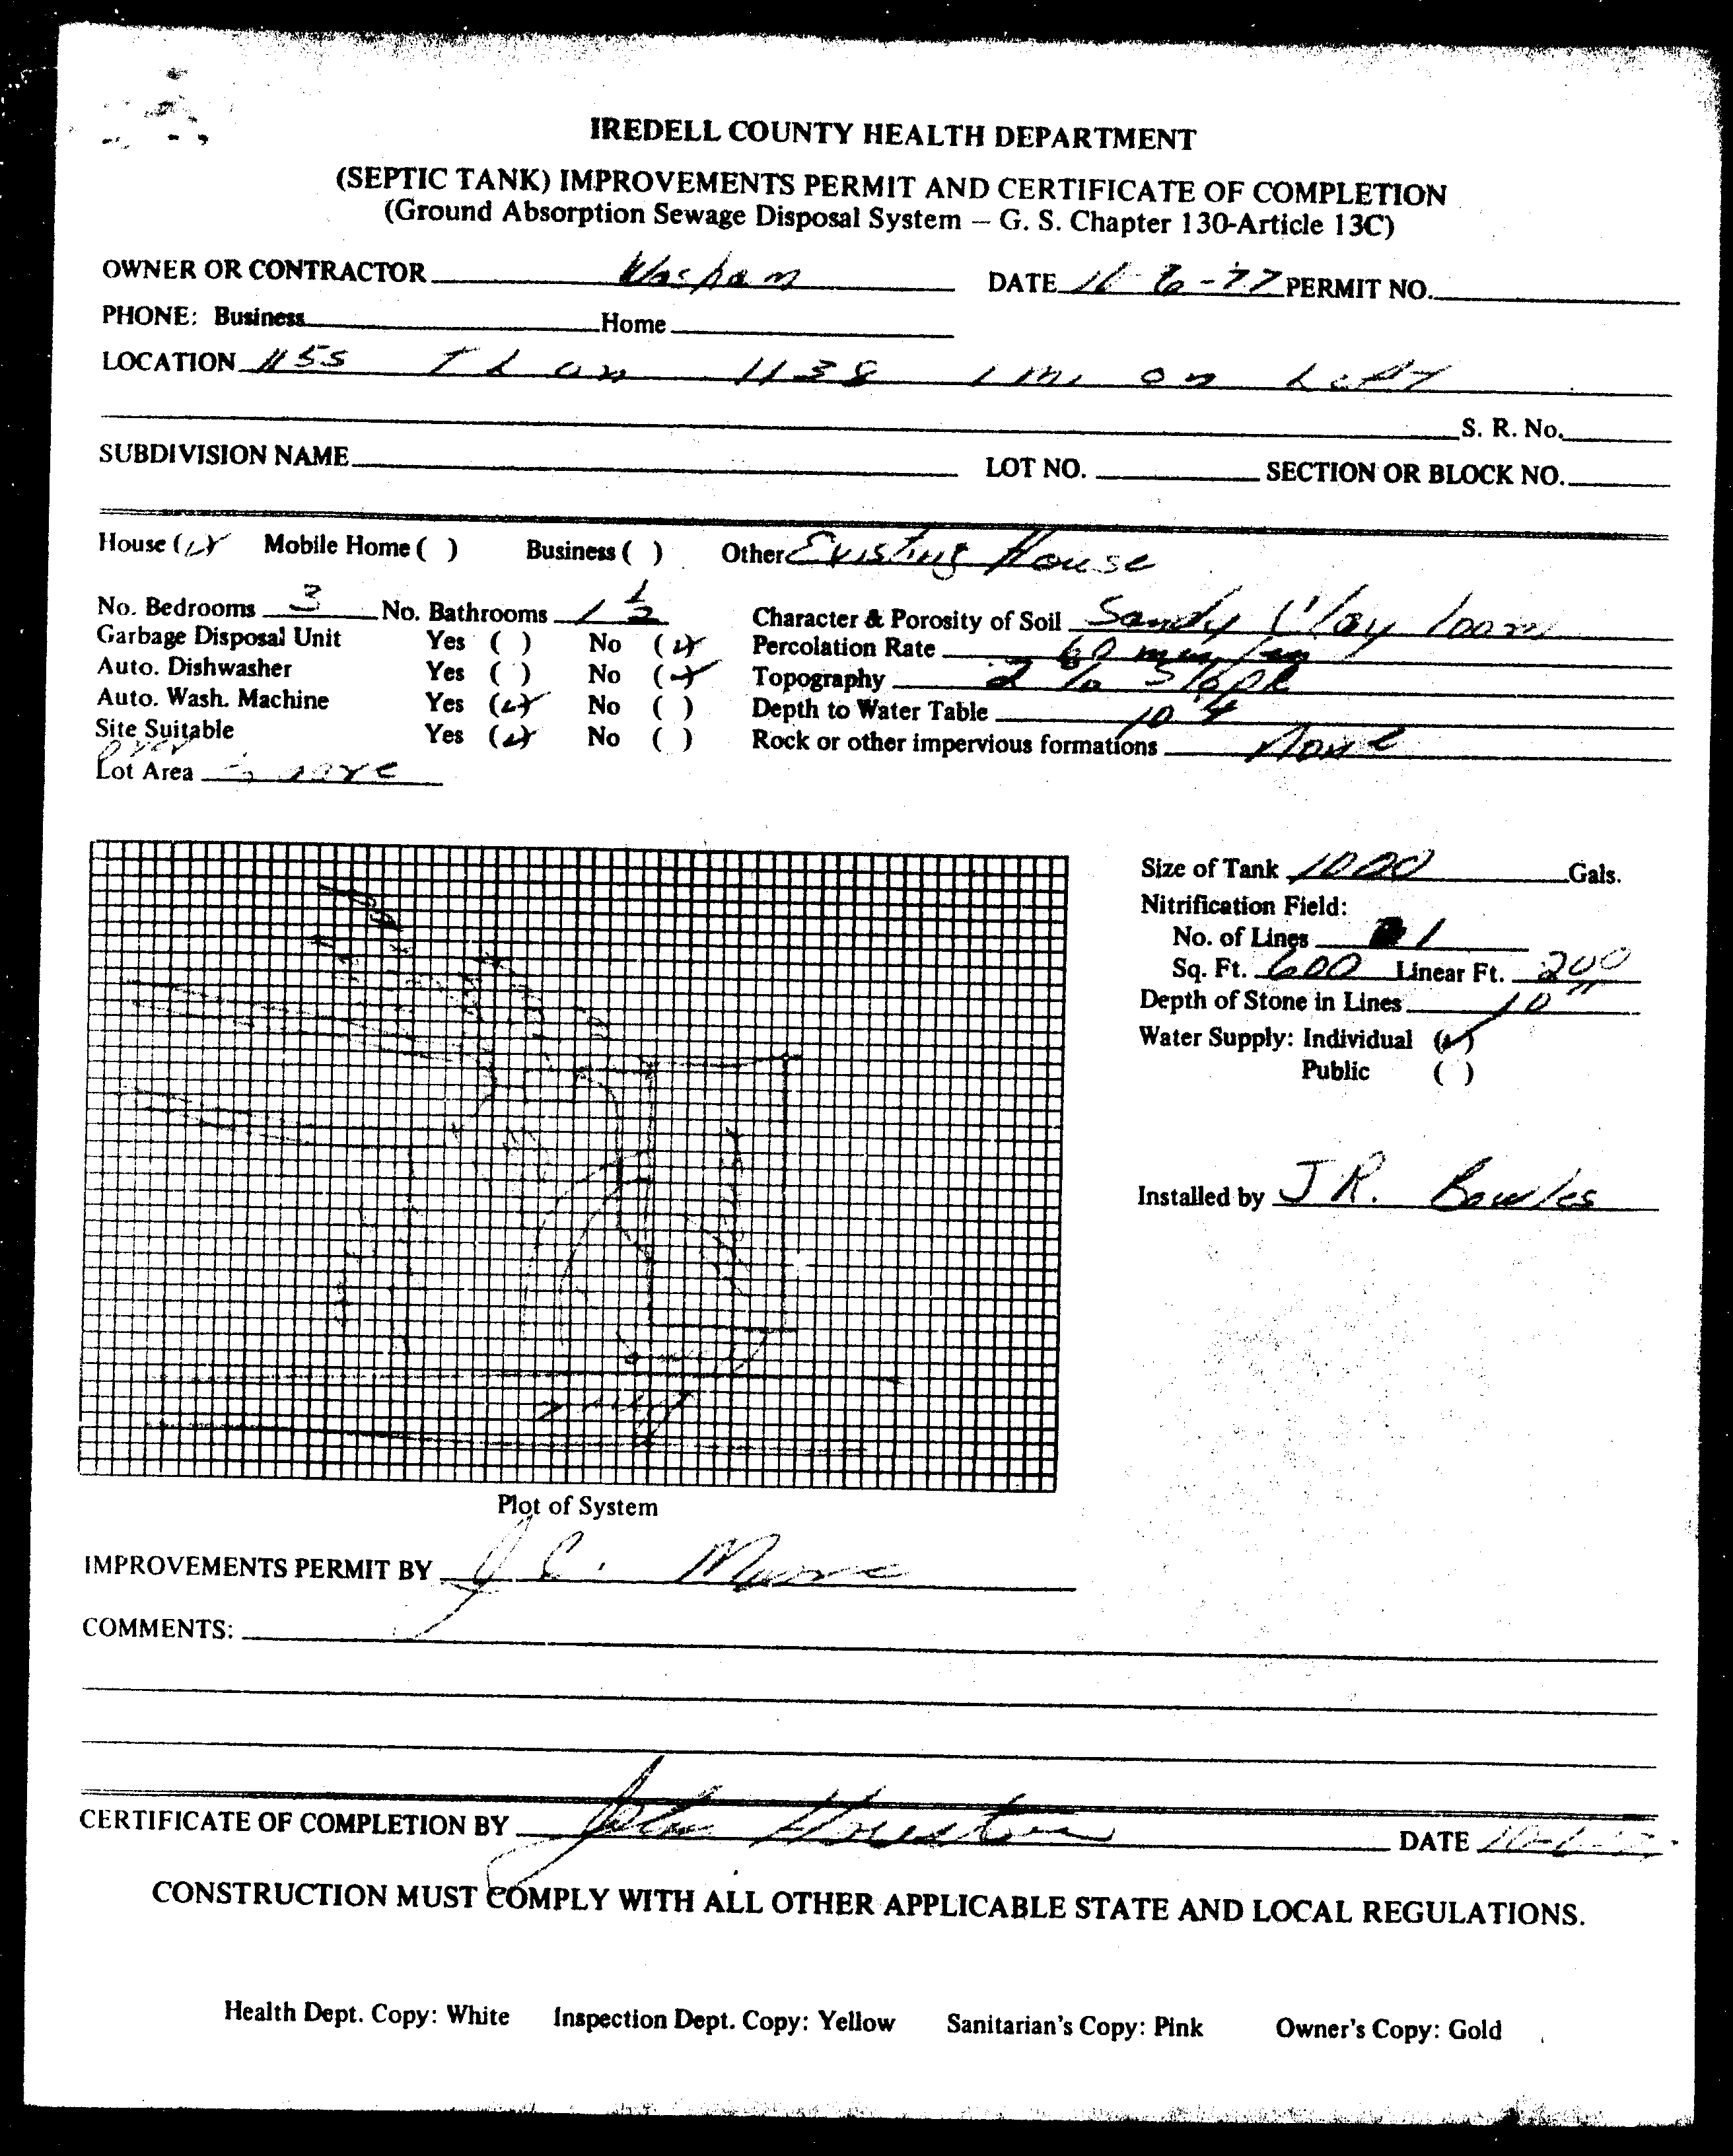 IREDELL COUNTY HEALTH DEPARTMENT
(SEPTIC TANK) IMPROVEMENTS PERMIT AND CERTIFICATE OF COMPLETION
(Ground Absorption Sewage Disposal System — G. S. Chapter 130-Article 13C)
OWNER OR CONTRACTOR Washam DATE 6-77 PERMIT NO.
PHONE: Business Home
LOCATION 1155 T L on 1138 1 mi on Left
S. R. No.
SUBDIVISION NAME LOT NO. SECTION OR BLOCK NO.
House (✓) Mobile Home ( ) Business ( ) Other Existing House
No. Bedrooms 3 No. Bathrooms 1 1/2 Character & Porosity of Soil Sandy Clay loam
Garbage Disposal Unit Yes ( ) No (✓) Percolation Rate 60 min/in
Auto. Dishwasher Yes ( ) No (✓) Topography 2 % Slope
Auto. Wash. Machine Yes (✓) No ( ) Depth to Water Table 10'+
Site Suitable Yes (✓) No ( ) Rock or other impervious formations None
over
Lot Area acre
Size of Tank 1000 Gals.
Nitrification Field:
No. of Lines 1
Sq. Ft. 600 Linear Ft. 200
Depth of Stone in Lines 10"
Water Supply: Individual (✓)
Public ( )
Installed by J R. Bowles
Plot of System
IMPROVEMENTS PERMIT BY J C. Moore
COMMENTS:
CERTIFICATE OF COMPLETION BY John Houston DATE
CONSTRUCTION MUST COMPLY WITH ALL OTHER APPLICABLE STATE AND LOCAL REGULATIONS.
Health Dept. Copy: White Inspection Dept. Copy: Yellow Sanitarian's Copy: Pink Owner's Copy: Gold